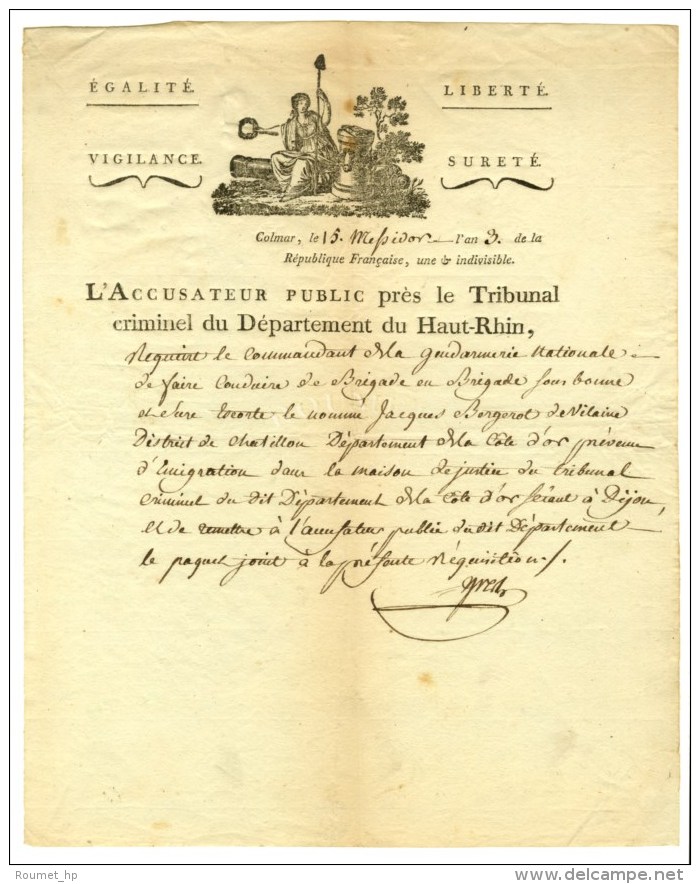 ÉGALITÉ.
LIBERTÉ.
VIGILANCE.
SURETÉ.
Colmar, le 15. Messidor l'an 3. de la
République Française, une & indivisible.
L'ACCUSATEUR PUBLIC près le Tribunal
criminel du Département du Haut-Rhin,
Requiert le commandant de la gendarmerie Nationale
de faire Conduire de Brigade en Brigade sous bonne
et sure Escorte le nommé Jacques Bergerot de Vilaine
District de Chatillon Département de la Côte d'or prévenu
d'Emigration dans la maison de justice du tribunal
criminel du dit Département de la Côte d'or séant à Dijon,
et de remettre à l'accusateur public du dit Département
le paquet joint à la présente Réquisition./.
Roumet_hp
www.delcampe.net